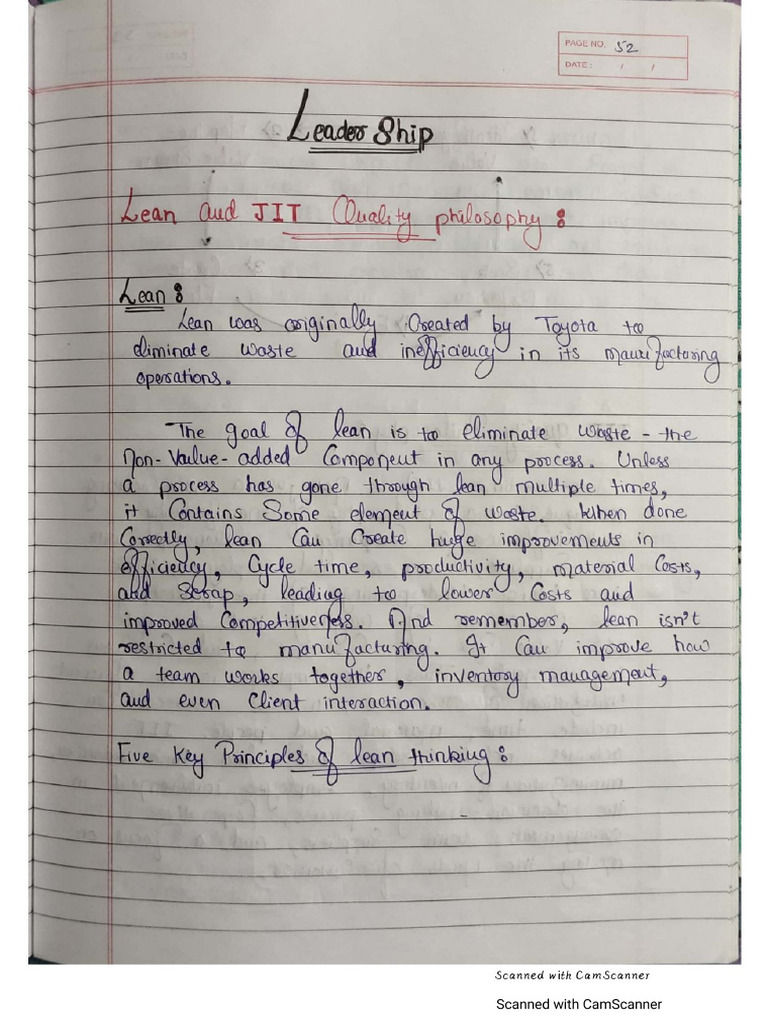 PAGE NO. 52
DATE: / /
Leadership
Lean and JIT Quality philosophy:
Lean:
Lean was originally Created by Toyota to
eliminate waste and inefficiency in its manufacturing
operations.
The goal of lean is to eliminate waste - the
Non-Value-added Component in any process. Unless
a process has gone through lean multiple times,
it Contains Some element of waste. When done
Correctly, lean Can Create huge improvements in
efficiency, Cycle time, productivity, material Costs,
and Scrap, leading to lower Costs and
improved Competitiveness. And remember, lean isn't
restricted to manufacturing. It Can improve how
a team works together, inventory management,
and even Client interaction.
Five Key Principles of lean thinking:
Scanned with CamScanner
Scanned with CamScanner